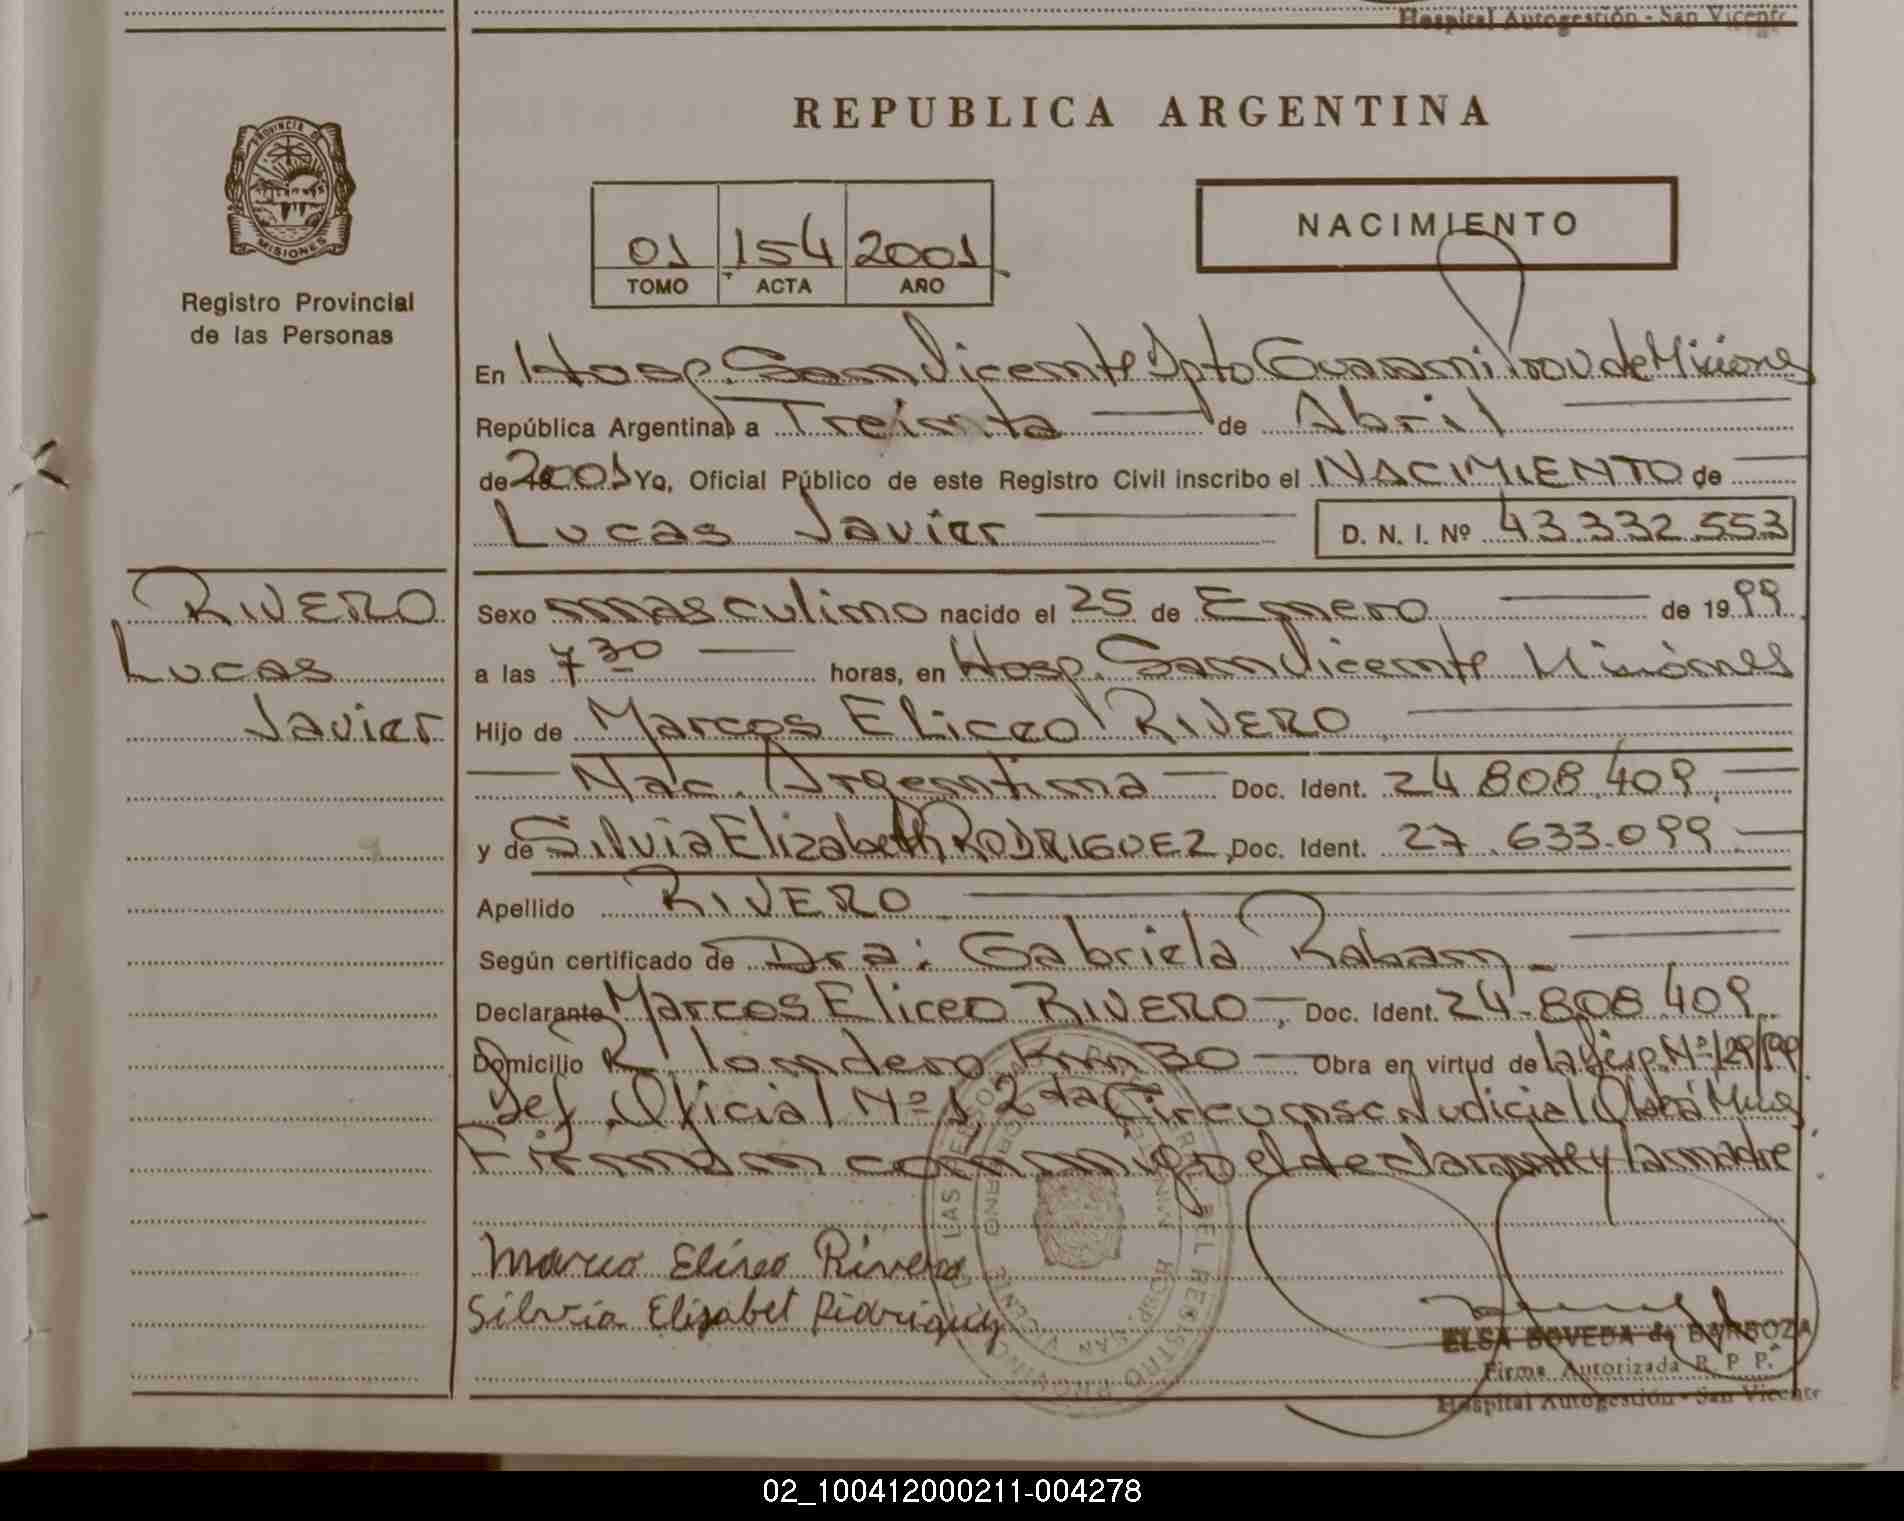 Hospital Autogestión - San Vicente
PROVINCIA DE
MISIONES
Registro Provincial
de las Personas
REPUBLICA ARGENTINA
01 154 2001
TOMO ACTA AÑO
NACIMIENTO
En Hosp. San Vicente Dpto Guarani Prov de Misiones
República Argentina, a Treinta de Abril
de 2001 Yo, Oficial Público de este Registro Civil inscribo el NACIMIENTO de
Lucas Javier D. N. I. Nº 43.332.553
RIVERO
Lucas
Javier
Sexo masculino nacido el 25 de Enero de 1999
a las 7 30 horas, en Hosp. San Vicente Misiones
Hijo de Marcos Eliceo RIVERO
Nac. Argentina Doc. Ident. 24.808.409
y de Silvia Elizabeth RODRIGUEZ, Doc. Ident. 27.633.099
Apellido RIVERO
Según certificado de Dra: Gabriela
Declarante Marcos Eliceo RIVERO, Doc. Ident. 24.808.409
Domicilio Km 30 Obra en virtud de la Nº 129/99
Def. Oficial Nº 1, 2da Circunsc. Judicial Oberá Mnes
Firman conmigo el declarante y la madre
Marcos Eliseo Rivero
Silvia Elisabet Rodriguez
ELSA BOVEDA de BARBOZA
Firma Autorizada R. P. P.
Hospital Autogestión - San Vicente
02_100412000211-004278